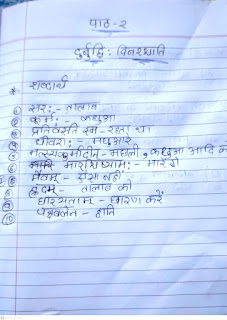 पाठ-२
दुर्बुद्धि: विनश्यति
* शब्दार्थ
① सर: - तालाब
② कूर्म: - कछुआ
③ प्रतिवसति स्म - रहता था
④ धीवरा: - मछुआरे
⑤ मत्स्यकूर्मादीन - मछली, कछुआ आदि को
⑥ मारयिष्याम: - मारेंगे
⑦ मैवम् - ऐसा नहीं
⑧ ह्रदम् - तालाब को
⑨ धारयताम् - धारण करें
⑩ पक्षबलेन -